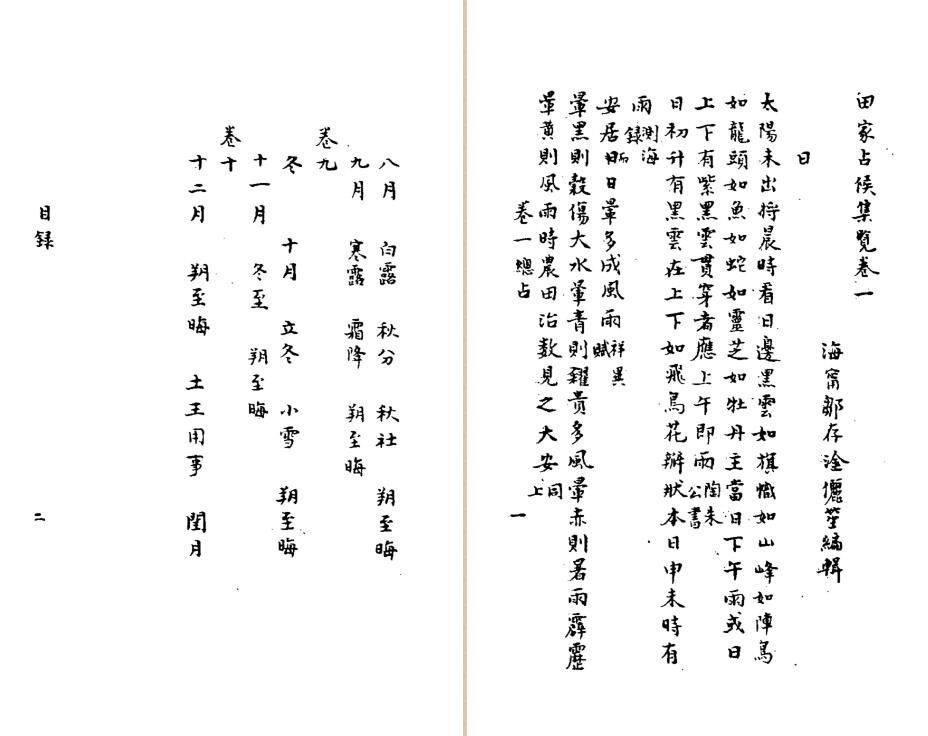 田家占候集覽卷一
海甯鄒存淦儷笙編輯
日
太陽未出將晨時看日邊黑雲如旗幟如山峰如陣鳥
如龍頭如魚如蛇如靈芝如牡丹主當日下午雨或日
上下有紫黑雲貫穿者應上午即雨陶朱公書
日初升有黑雲在上下如飛鳥花瓣狀本日申未時有
雨測海錄
安居日暈多成風雨祥異賦
暈黑則穀傷大水暈青則糴貴多風暈赤則暑雨霹靂
暈黃則風雨時農田治數見之大安同上
卷一總占
一
八月 白露 秋分 秋社 朔至晦
九月 寒露 霜降 朔至晦
卷九
冬 十月 立冬 小雪 朔至晦
十一月 冬至 朔至晦
卷十
十二月 朔至晦 土王用事 閏月
目錄
二